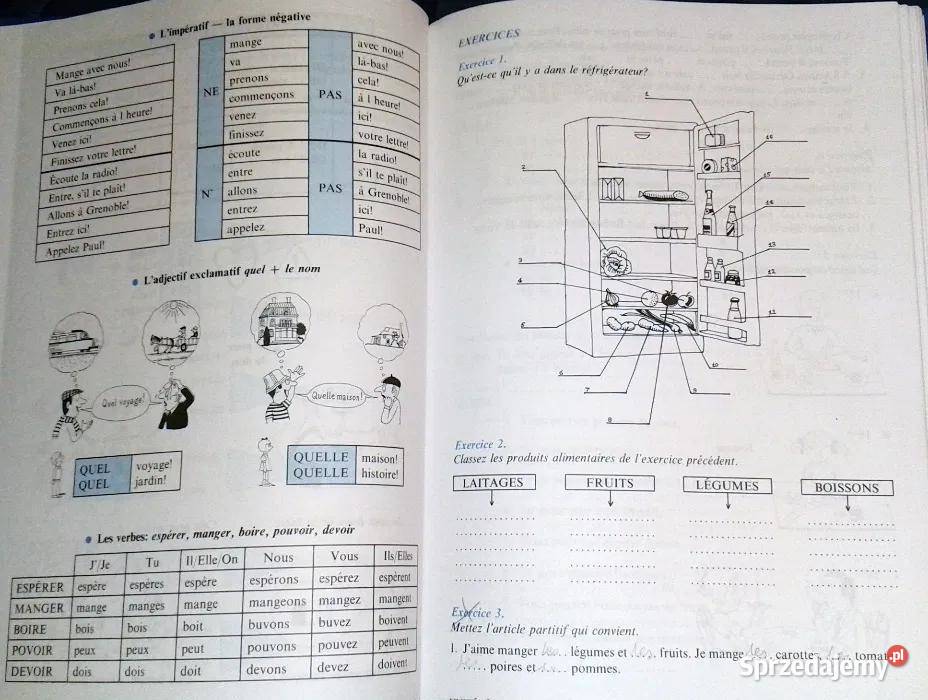 L'impératif — la forme négative
Mange avec nous!
Va là-bas!
Prenons cela!
Commençons à 1 heure!
Venez ici!
Finissez votre lettre!
Écoute la radio!
Entre, s'il te plaît!
Allons à Grenoble!
Entrez ici!
Appelez Paul!
NE
mange
va
prenons
commençons
venez
finissez
PAS
avec nous!
là-bas!
cela!
à 1 heure!
ici!
votre lettre!
N'
écoute
entre
allons
entrez
appelez
PAS
la radio!
s'il te plaît!
à Grenoble!
ici!
Paul!
L'adjectif exclamatif quel + le nom
Quel voyage!
Quelle maison!
QUEL voyage!
QUEL jardin!
QUELLE maison!
QUELLE histoire!
Les verbes: espérer, manger, boire, pouvoir, devoir
J'/Je Tu Il/Elle/On Nous Vous Ils/Elles
ESPÉRER espère espères espère espérons espérez espèrent
MANGER mange manges mange mangeons mangez mangent
BOIRE bois bois boit buvons buvez boivent
POVOIR peux peux peut pouvons pouvez peuvent
DEVOIR dois dois doit devons devez doivent
EXERCICES
Exercice 1.
Qu'est-ce qu'il y a dans le réfrigérateur?
1
2
3
4
5
6
7
8
9
10
11
12
13
15
Exercice 2.
Classez les produits alimentaires de l'exercice précédent.
LAITAGES FRUITS LÉGUMES BOISSONS
Exercice 3.
Mettez l'article partitif qui convient.
1. J'aime manger les légumes et les fruits. Je mange des carottes, des tomat
poires et pommes.
Sprzedajemy.pl